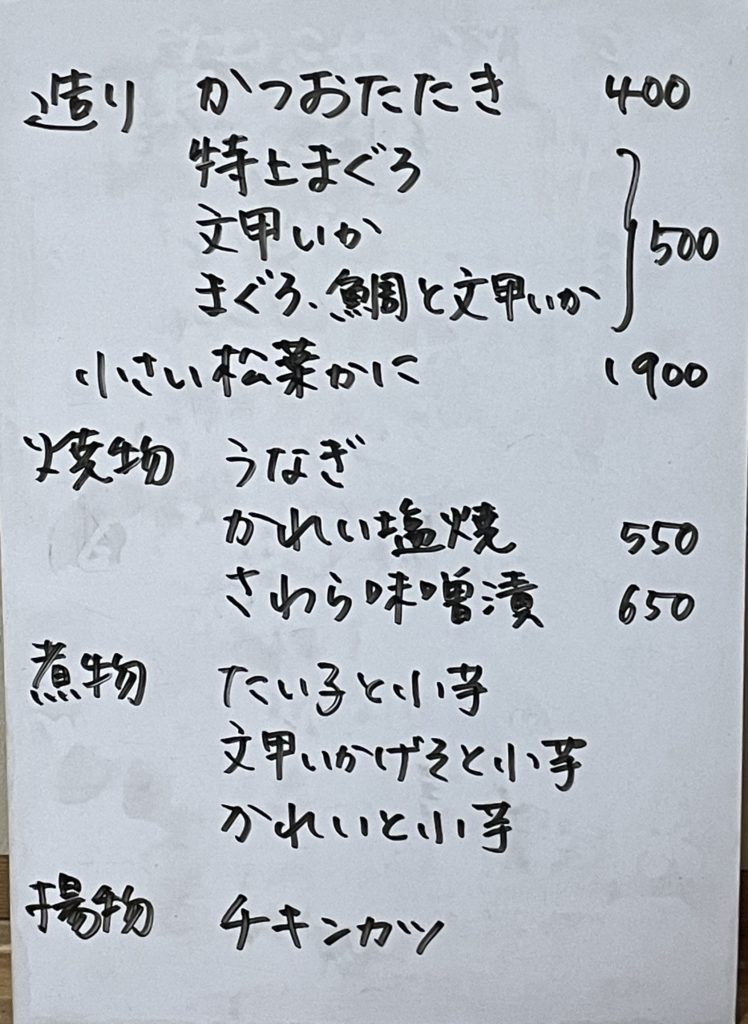 造り かつおたたき 400
特上まぐろ
文甲いか } 500
まぐろ、鯛と文甲いか
小さい松葉かに 1900
焼物 うなぎ
かれい塩焼 550
さわら味噌漬 650
煮物 たい子と小芋
文甲いかげそと小芋
かれいと小芋
揚物 チキンカツ